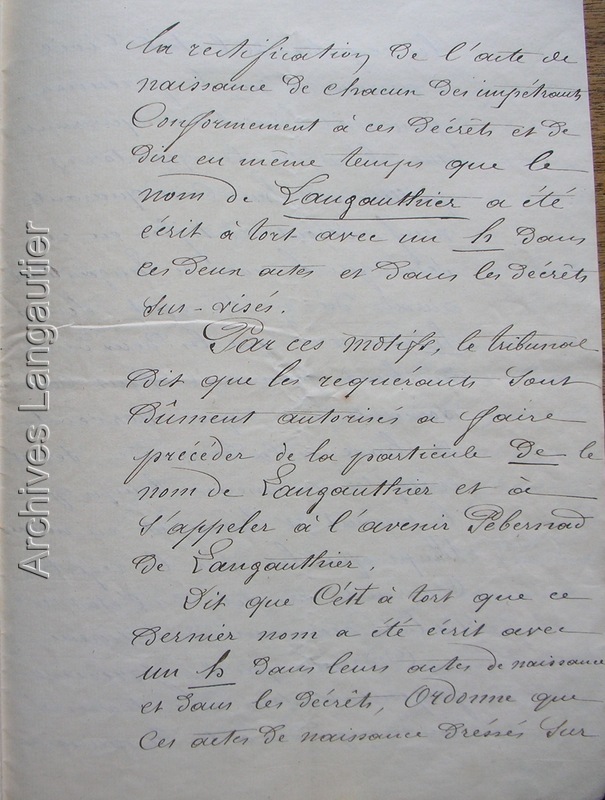 la rectification de l'acte de
naissance de chacun des impétrants
Conformement à ces décrets et de
dire en même temps que le
nom de Langauthier a été
écrit à tort avec un h dans
ces deux actes et dans les décrets
sus-visés.
Par ces motifs, le tribunal
dit que les requérants sont
dûment autorisés a faire
précéder de la particule de le
nom de Langauthier et à
s'appeler à l'avenir Pébernad
de Langauthier.
Dit que C'est à tort que ce
dernier nom a été écrit avec
un h dans leurs actes de naissance
et dans les décrêts, Ordonne que
Ces actes de naissance dressés sur
Archives Langautier